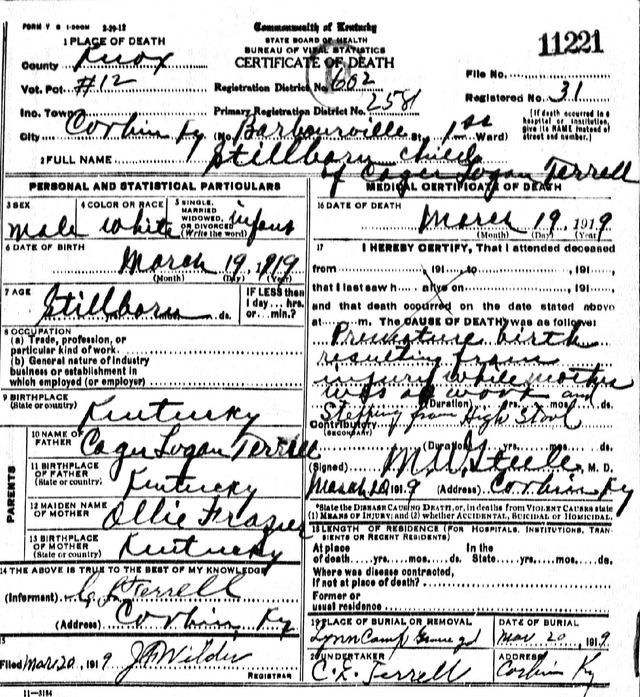 FORM V S 1-500M 2-29-12
Commonwealth of Kentucky
STATE BOARD OF HEALTH
BUREAU OF VITAL STATISTICS
CERTIFICATE OF DEATH
11221
1 PLACE OF DEATH
County Knox
Vot. Pct. #12
Registration District No. 602
File No.
Inc. Town
Primary Registration District No. 2581
Registered No. 31
City Corbin Ky (No. Barbourville St., 1st Ward)
[If death occurred in a hospital or institution, give its NAME instead of street and number.]
2 FULL NAME Stillborn child of Cager Logan Terrell
PERSONAL AND STATISTICAL PARTICULARS
3 SEX male
4 COLOR OR RACE white
5 SINGLE, MARRIED WIDOWED, OR DIVORCED (Write the word) infant
6 DATE OF BIRTH
March 19 1919
(Month) (Day) (Year)
7 AGE Stillborn ds.
IF LESS than 1 day ... hrs. or ... min.?
8 OCCUPATION
(a) Trade, profession, or particular kind of work
(b) General nature of industry business or establishment in which employed (or employer)
9 BIRTHPLACE
(State or country) Kentucky
PARENTS
10 NAME OF FATHER Cager Logan Terrell
11 BIRTHPLACE OF FATHER (State or country) Kentucky
12 MAIDEN NAME OF MOTHER Ollie Frazier
13 BIRTHPLACE OF MOTHER (State or country) Kentucky
14 THE ABOVE IS TRUE TO THE BEST OF MY KNOWLEDGE
(Informant) Terrell
(Address) Corbin, Ky
15
Filed Mar 20, 1919 Wilder
REGISTRAR
11-3184
MEDICAL CERTIFICATE OF DEATH
16 DATE OF DEATH
March 19, 1919
(Month) (Day) (Year)
17 I HEREBY CERTIFY, That I attended deceased
from , 191 to , 191 ,
that I last saw h alive on , 191 ,
and that death occurred on the date stated above
at m. The CAUSE OF DEATH was as follows:
Premature birth
resulting from
injury while mother
was at work and
(Duration) yrs. mos. ds.
Contributory falling from High Stool
(SECONDARY)
(Duration) yrs. mos. ds.
(Signed) Steele, M. D.
March 20, 1919 (Address) Corbin Ky
*State the DISEASE CAUSING DEATH, or, in deaths from VIOLENT CAUSES state
(1) MEANS OF INJURY; and (2) whether ACCIDENTAL, SUICIDAL or HOMICIDAL.
18 LENGTH OF RESIDENCE (FOR HOSPITALS, INSTITUTIONS, TRANSIENTS OR RECENT RESIDENTS)
At place of death yrs. mos. ds. In the State yrs. mos. ds.
Where was disease contracted,
If not at place of death?
Former or
usual residence
19 PLACE OF BURIAL OR REMOVAL
Lynn Camp
DATE OF BURIAL
Mar 20, 1919
20 UNDERTAKER
Terrell
ADDRESS
Corbin Ky